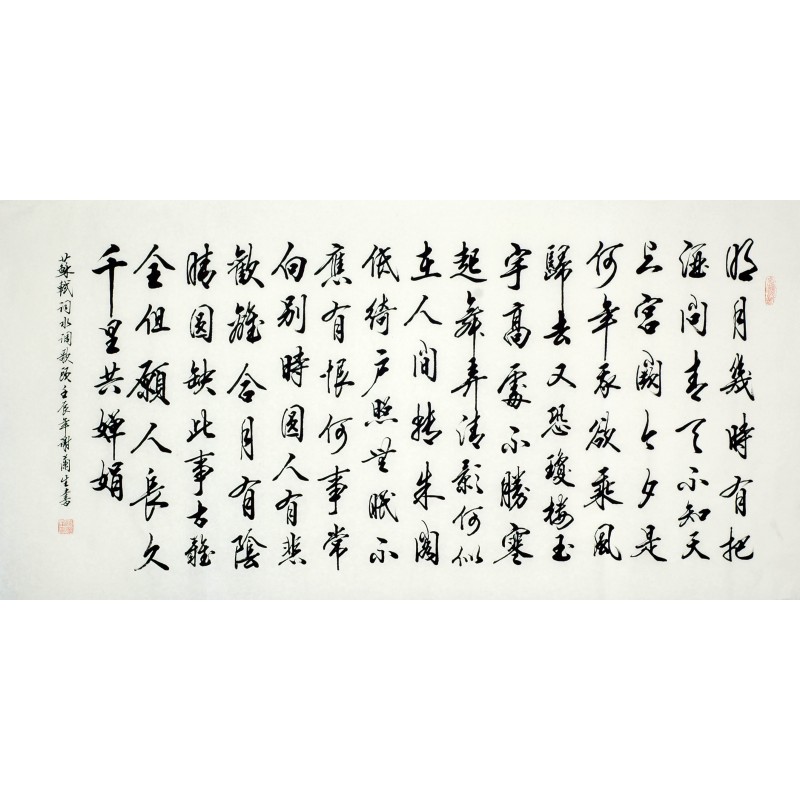 明月幾時有把
酒問青天不知天
上宮闕今夕是
何年我欲乘風
歸去又恐瓊樓玉
宇高處不勝寒
起舞弄清影何似
在人間轉朱閣
低綺戶照無眠不
應有恨何事常
向別時圓人有悲
歡離合月有陰
晴圓缺此事古難
全但願人長久
千里共嬋娟
蘇軾詞水調歌頭壬辰年謝生書